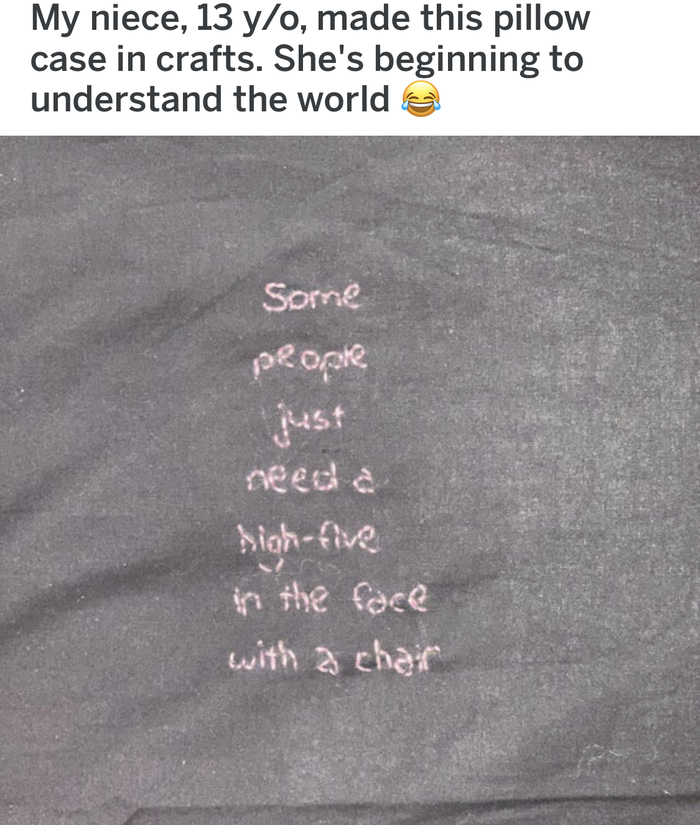 My niece, 13 y/o, made this pillow
case in crafts. She's beginning to
understand the world 😂
Some
people
just
need a
high-five
in the face
with a chair